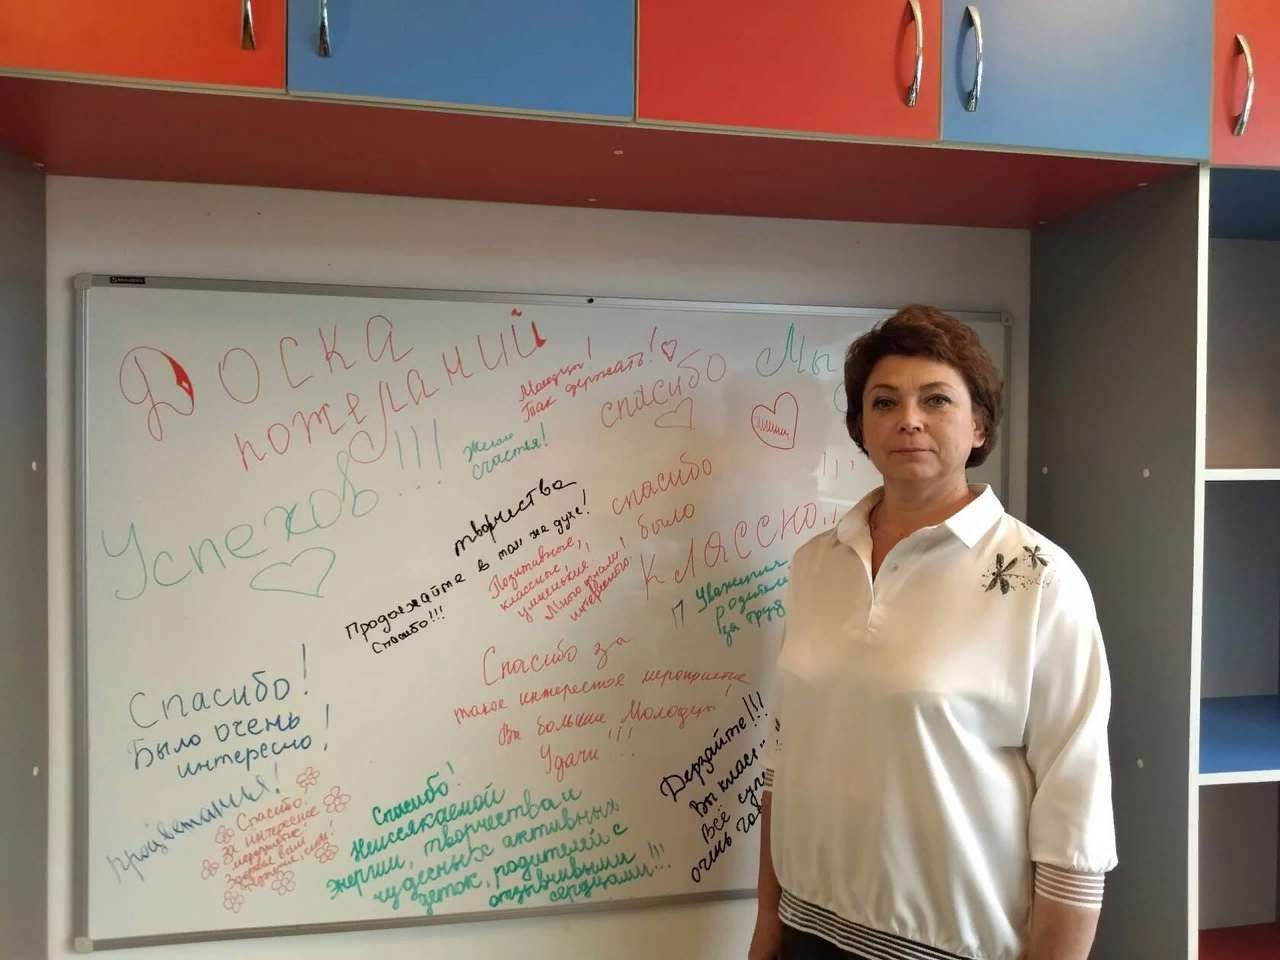 Доска
пожеланий
Успехов!!!
Молодцы!
Так держать!
Желаю
счастья!
спасибо
Мы
творчества
Продолжайте в том же духе!
Спасибо!!!
Позитивные,
классные,
умненькие!
Много узнали,
интересно!
спасибо
было
классно!!!
Уважения
родителям
за труд
Спасибо!
Было очень
интересно!
Спасибо за
такое интересное мероприятие
Вы большие Молодцы!
Удачи!!!
процветания!
Спасибо!
За интересное
Спасибо!
Неиссякаемой
энергии, творчества и
чудесных активных
деток, родителей с
отзывчивыми
сердцами!!!
Дерзайте!!!
Вы
Всё
очень